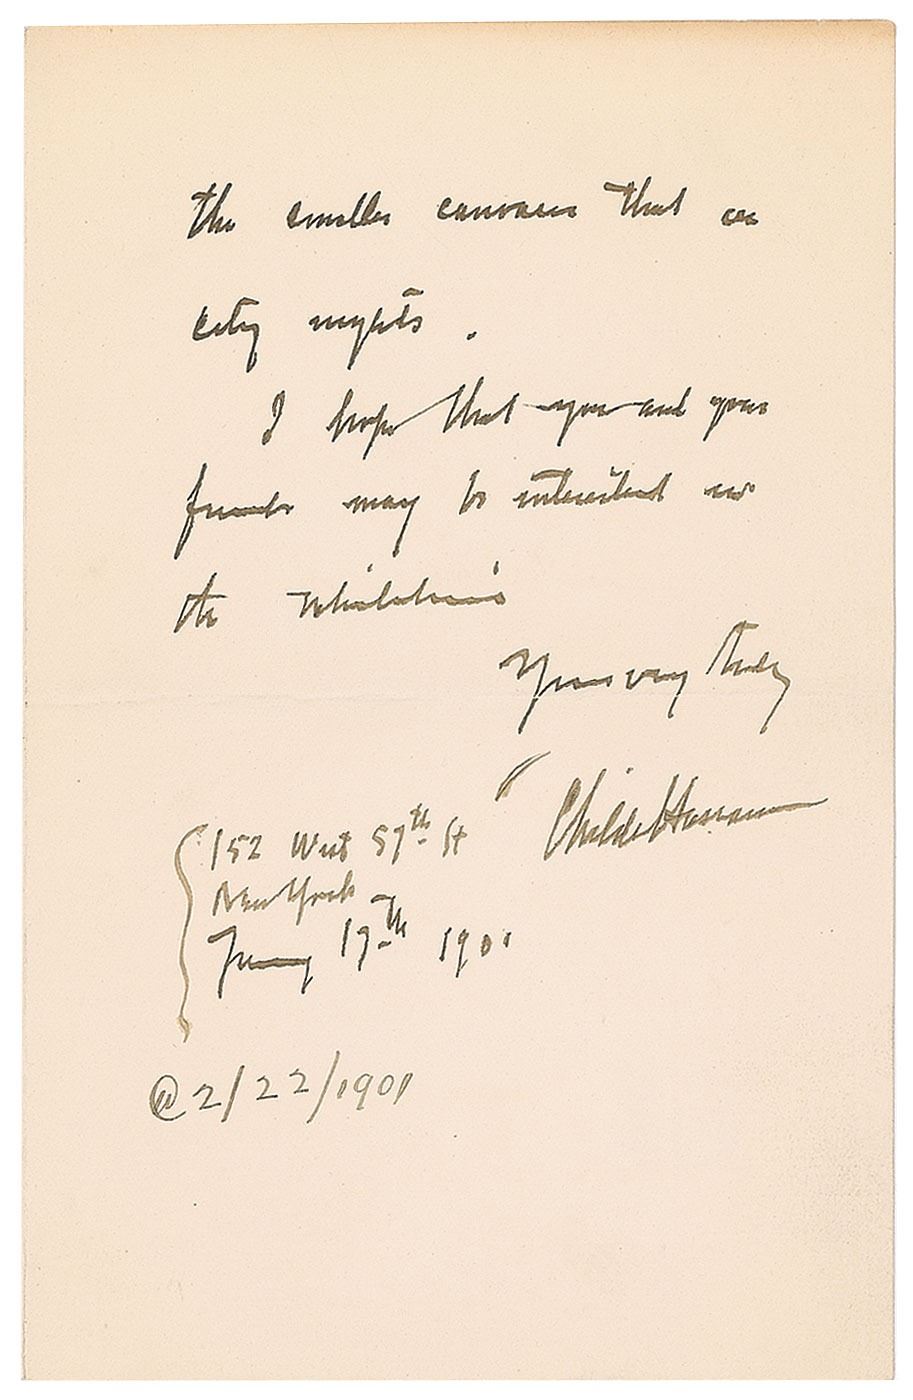 the smaller canvases that are
city nights .
I hope that you and your
friends may be interested in
the exhibition
Yours very truly
Childe Hassam
152 West 57th St
New York
1901
@ 2/22/1901